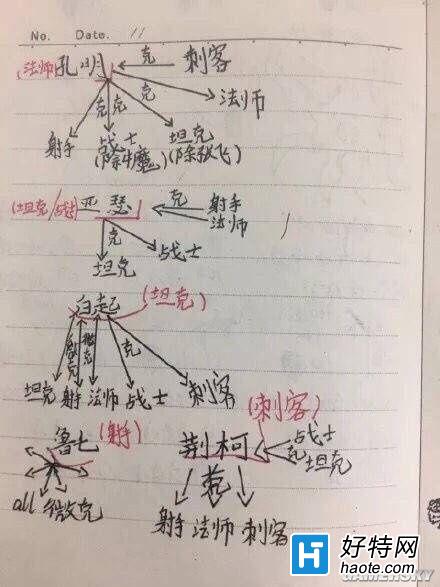 No. Date. 11
(法师) 孔明 克 刺客
克 克 克 法师
射手 战士 坦克
(除牛魔) (除张飞)
(坦克/战士) 亚瑟 克 射手
法师
克 战士
坦克
白起 (坦克)
微克 微克 克
坦克 射手 法师 战士 刺客
(刺客)
鲁七 (射手) 荆柯 克 战士
坦克
all 微克 克
射手 法师 刺客
好特网
haote.com
GAMERSKY